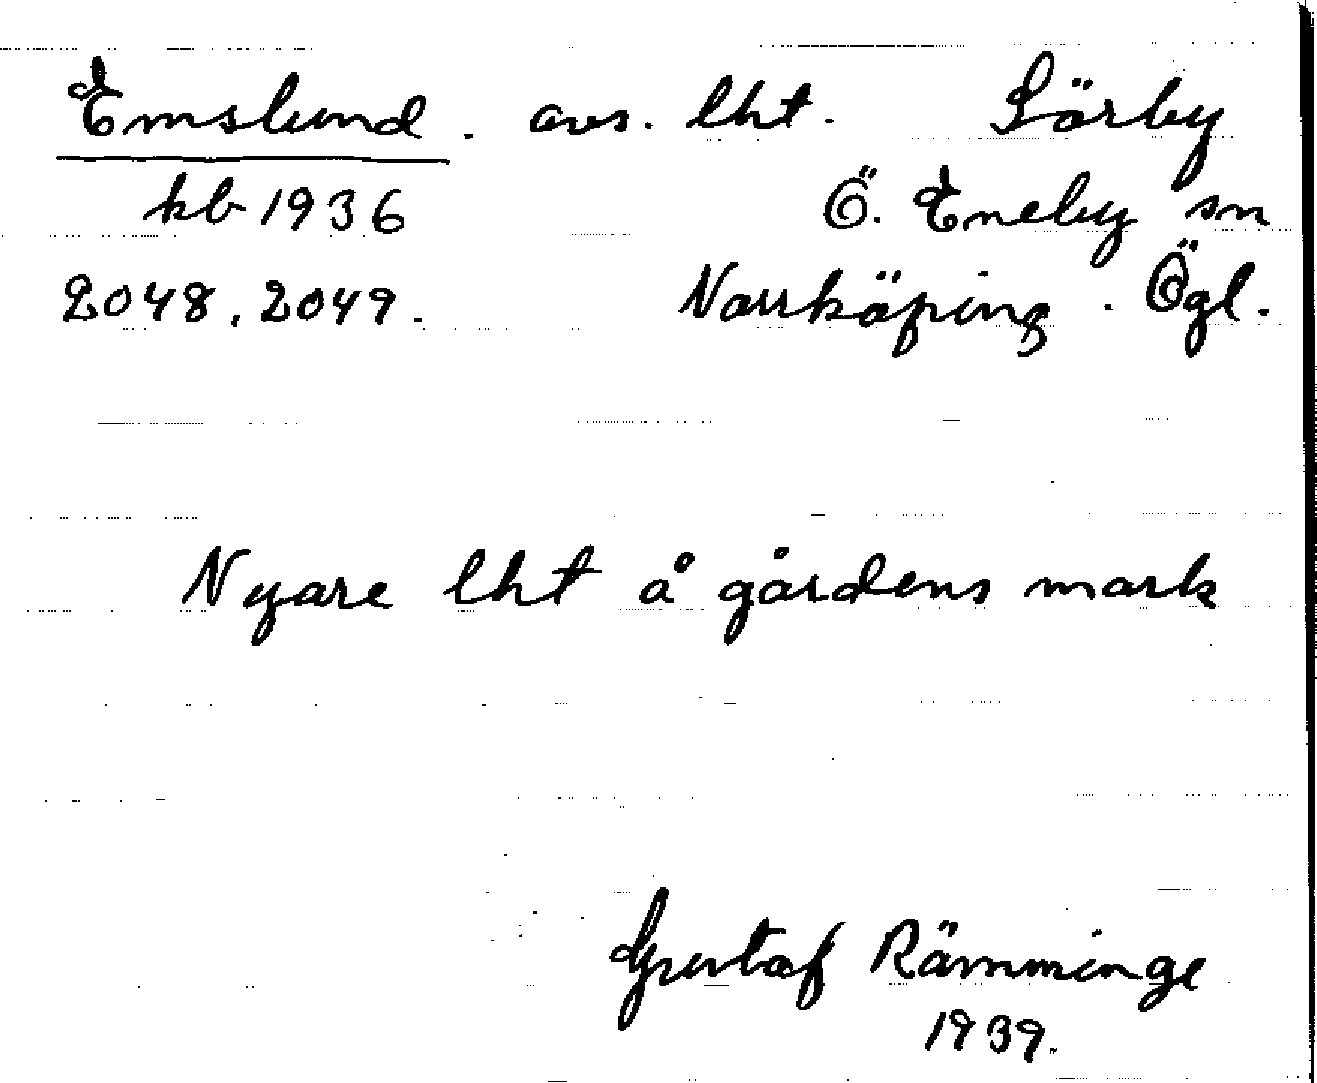 Emslund. avs. lht. Sörby
kb 1936 Ö. Eneby sn
2048, 2049. Norrköping. Ögl.
Nyare lht å gårdens mark
Gustaf Rämminge
1939.